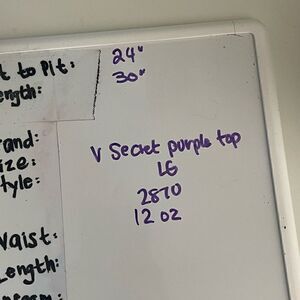 t to Pit: 24"
ength: 30"
rand:
ize:
tyle:
V Secret purple top
LG
2870
12 oz
Waist:
Length: